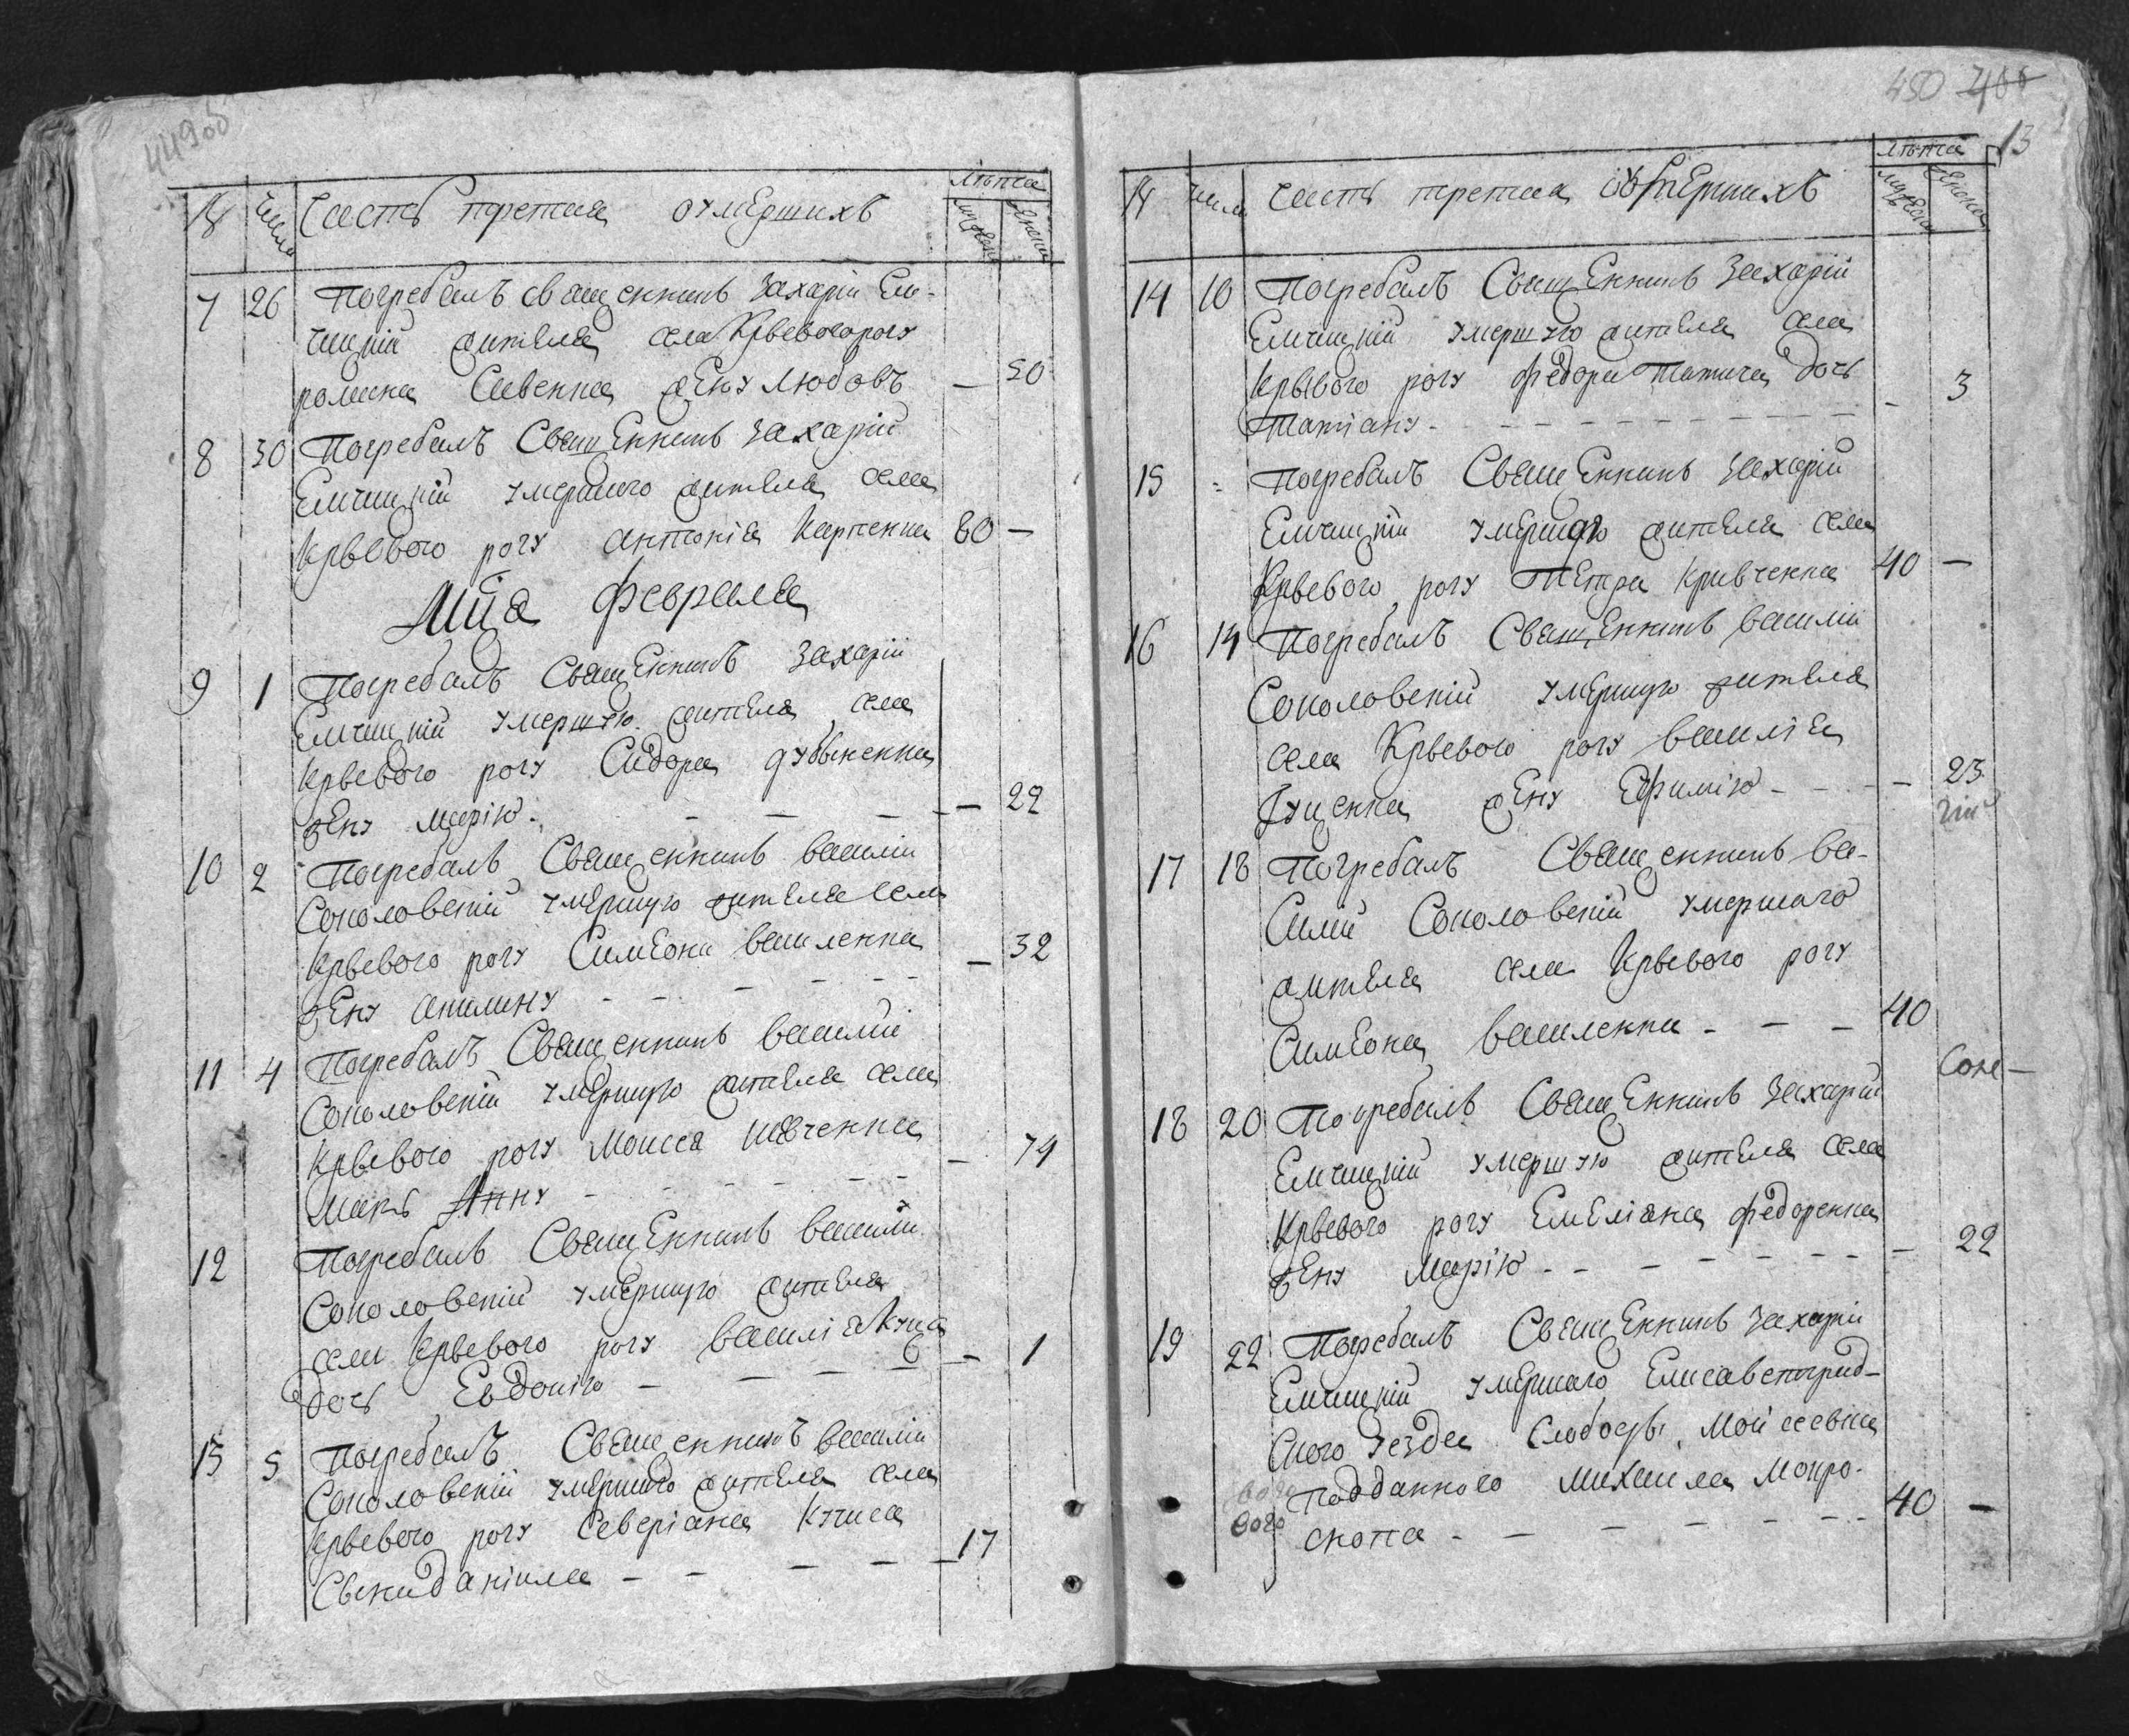 449об
№ Число Часть третья о умершихъ Лѣта
мужеска женска
7 26 Погребалъ священникъ Захарій Ем-
чицкій жителя села Крывогорогу
романа Савенка жену Любовъ — 50
8 30 Погребалъ Священникъ Захарій
Емчицкій умершаго жителя села
Крывого рогу антонія Карпенка 80 —
Мца февраля
9 1 Погребалъ Священникъ Захарій
Емчицкій умершую жителя села
Крывого рогу Сидора дубыненка
жену марію — 22
10 2 Погребалъ Священникъ василій
Соколовскій умершую жителя села
Крывого рогу Симеона василенка
жену акилину — 32
11 4 Погребалъ Священникъ василій
Соколовскій умершую жителя села
Крывого рогу Моисея шевченка
мать Анну — 74
12 Погребалъ Священникъ василій
Соколовскій умершую жителя
села Крывого рогу василія
дочь Евдокію — 1
13 5 Погребалъ Священникъ василій
Соколовскій умершаго жителя села
Крывого рогу Северіана
сына даніила — 17
450 400
13
№ число часть третья объ умершихъ лѣта
мужеска женска
14 10 Погребалъ Священникъ Захарій
Емчицкій умершую жителя села
Крывого рогу федора дочь
Татіану — 3
15 - Погребалъ Священникъ Захарій
Емчицкій умершаго жителя села
Крывого рогу Петра кривченка 40 —
16 14 Погребалъ Священникъ василій
Соколовскій умершую жителя
села Крывого рогу василія
жену Ефимію — 23
17 18 Погребалъ Священникъ ва-
силій Соколовскій умершаго
жителя села Крывого рогу
Симеона василенка — 40
18 20 Погребалъ Священникъ Захарій
Емчицкій умершую жителя села
Крывого рогу Емеліана федоренка
жену Марію — 22
19 22 Погребалъ Священникъ Захарій
Емчицкій умершаго Елисаветград-
ского уезда Слободы Мойсеевки
подданного михаила Мокро-
скопа — 40 —